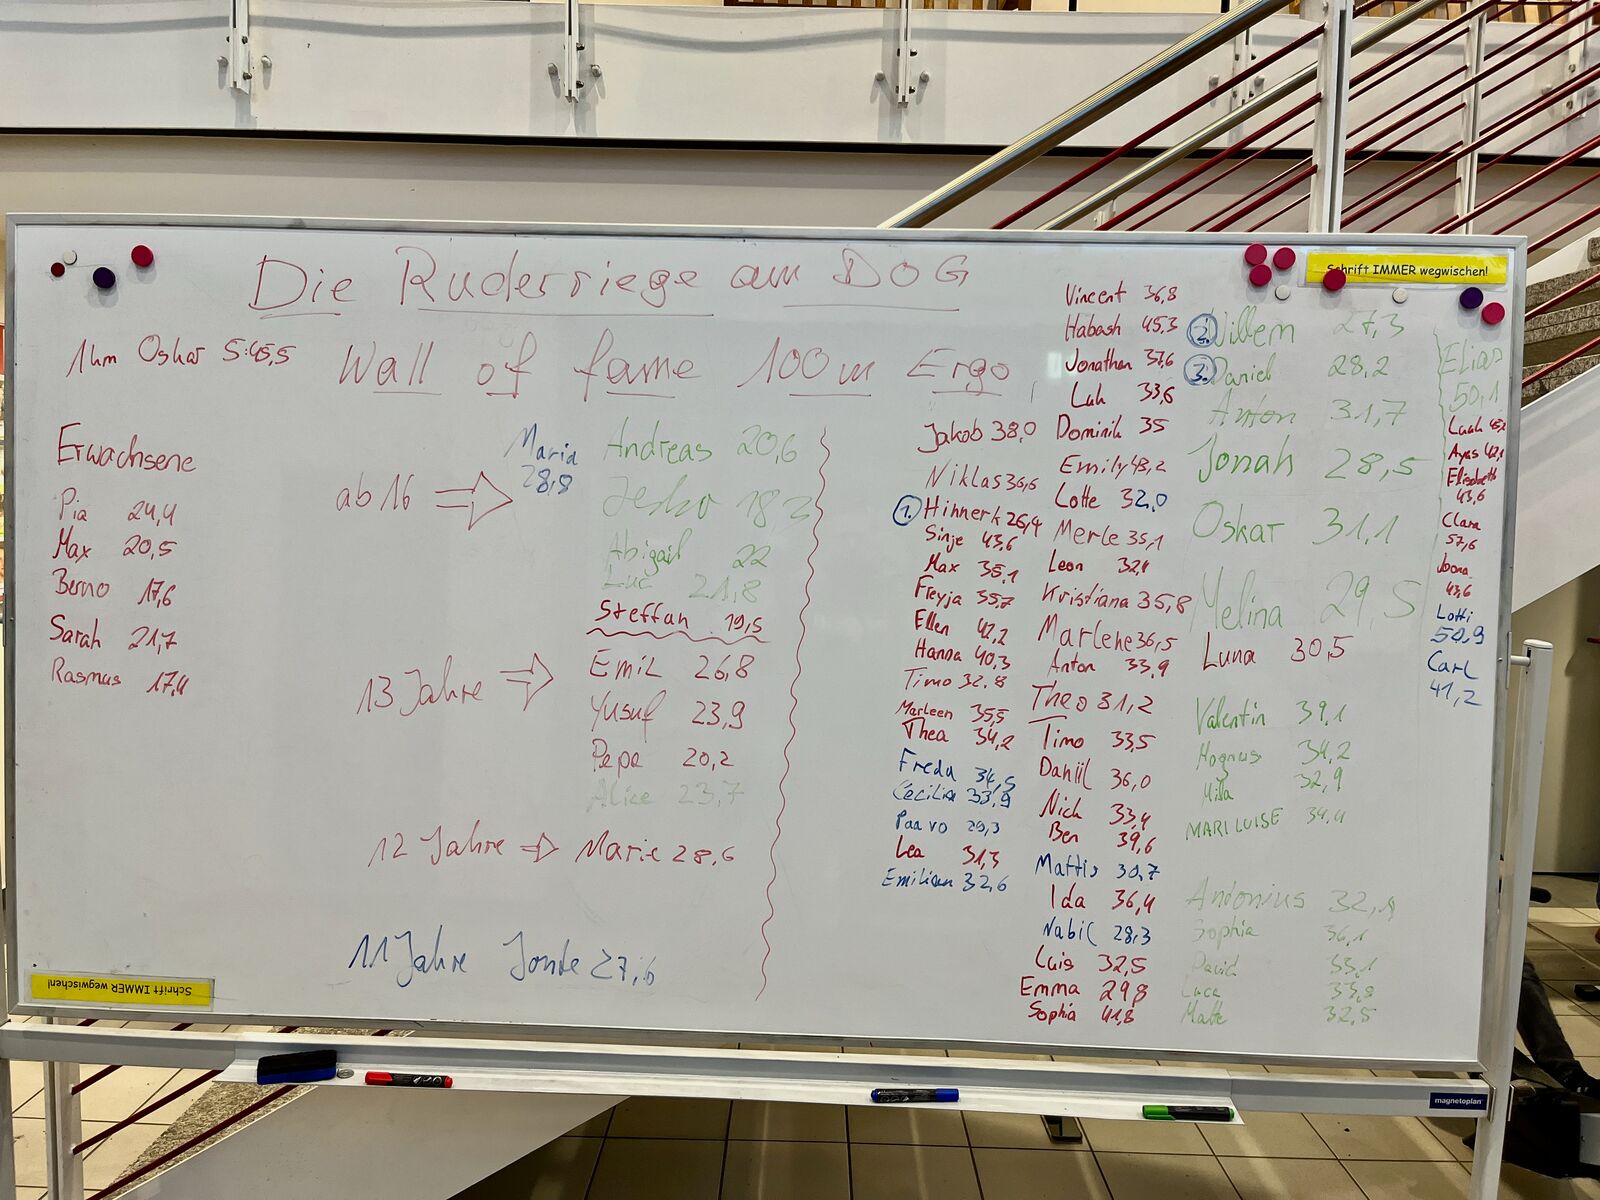 Die Ruderriege am DOG
1km Oskar 5:45,5
Wall of fame 100m Ergo
Erwachsene
Pia 24,4
Max 20,5
Benno 17,6
Sarah 21,7
Rasmus 17,4
ab 16
Maria
28,8
Andreas 20,6
Jesko 18,3
Abigail 22
Luc 21,8
Steffan 19,5
13 Jahre
Emil 26,8
Yusuf 23,9
Pepe 20,2
Alice 23,7
12 Jahre Marie 28,6
11 Jahre Jonte 27,6
Jakob 38,0
Niklas 36,6
1. Hinnerk 26,4
Sinje 43,6
Max 35,1
Freyja 35,7
Ellen 42,2
Hanna 40,3
Timo 32,8
Marleen 35,5
Thea 34,2
Freda 34,5
Cecilia 33,9
Paavo 29,3
Lea 31,3
Emilian 32,6
Vincent 36,8
Habash 45,3
Jonathan 37,6
Luk 33,6
Dominik 35
Emily 43,2
Lotte 32,0
Merle 35,1
Leon 32,1
Kristiana 35,8
Marlene 36,5
Anton 33,9
Theo 31,2
Timo 33,5
Daniil 36,0
Nick 33,4
Ben 39,6
Mattis 30,7
Ida 36,4
Nabil 28,3
Luis 32,5
Emma 29,8
Sophia 41,8
2. Willem 27,3
3. Daniel 28,2
Anton 31,7
Jonah 28,5
Oskar 31,1
Melina 29,5
Luna 30,5
Valentin 39,1
Magnus 34,2
Mila 32,9
MARI LUISE 34,4
Antonius
Sophia 36,1
David 33,1
Luca 33,8
Malte 32,5
Elias
50,1
Elisabeth
43,6
Clara
57,6
Joona
43,6
Lotti
50,9
Carl
41,2
Schrift IMMER wegwischen!
Schrift IMMER wegwischen!
magnetoplan